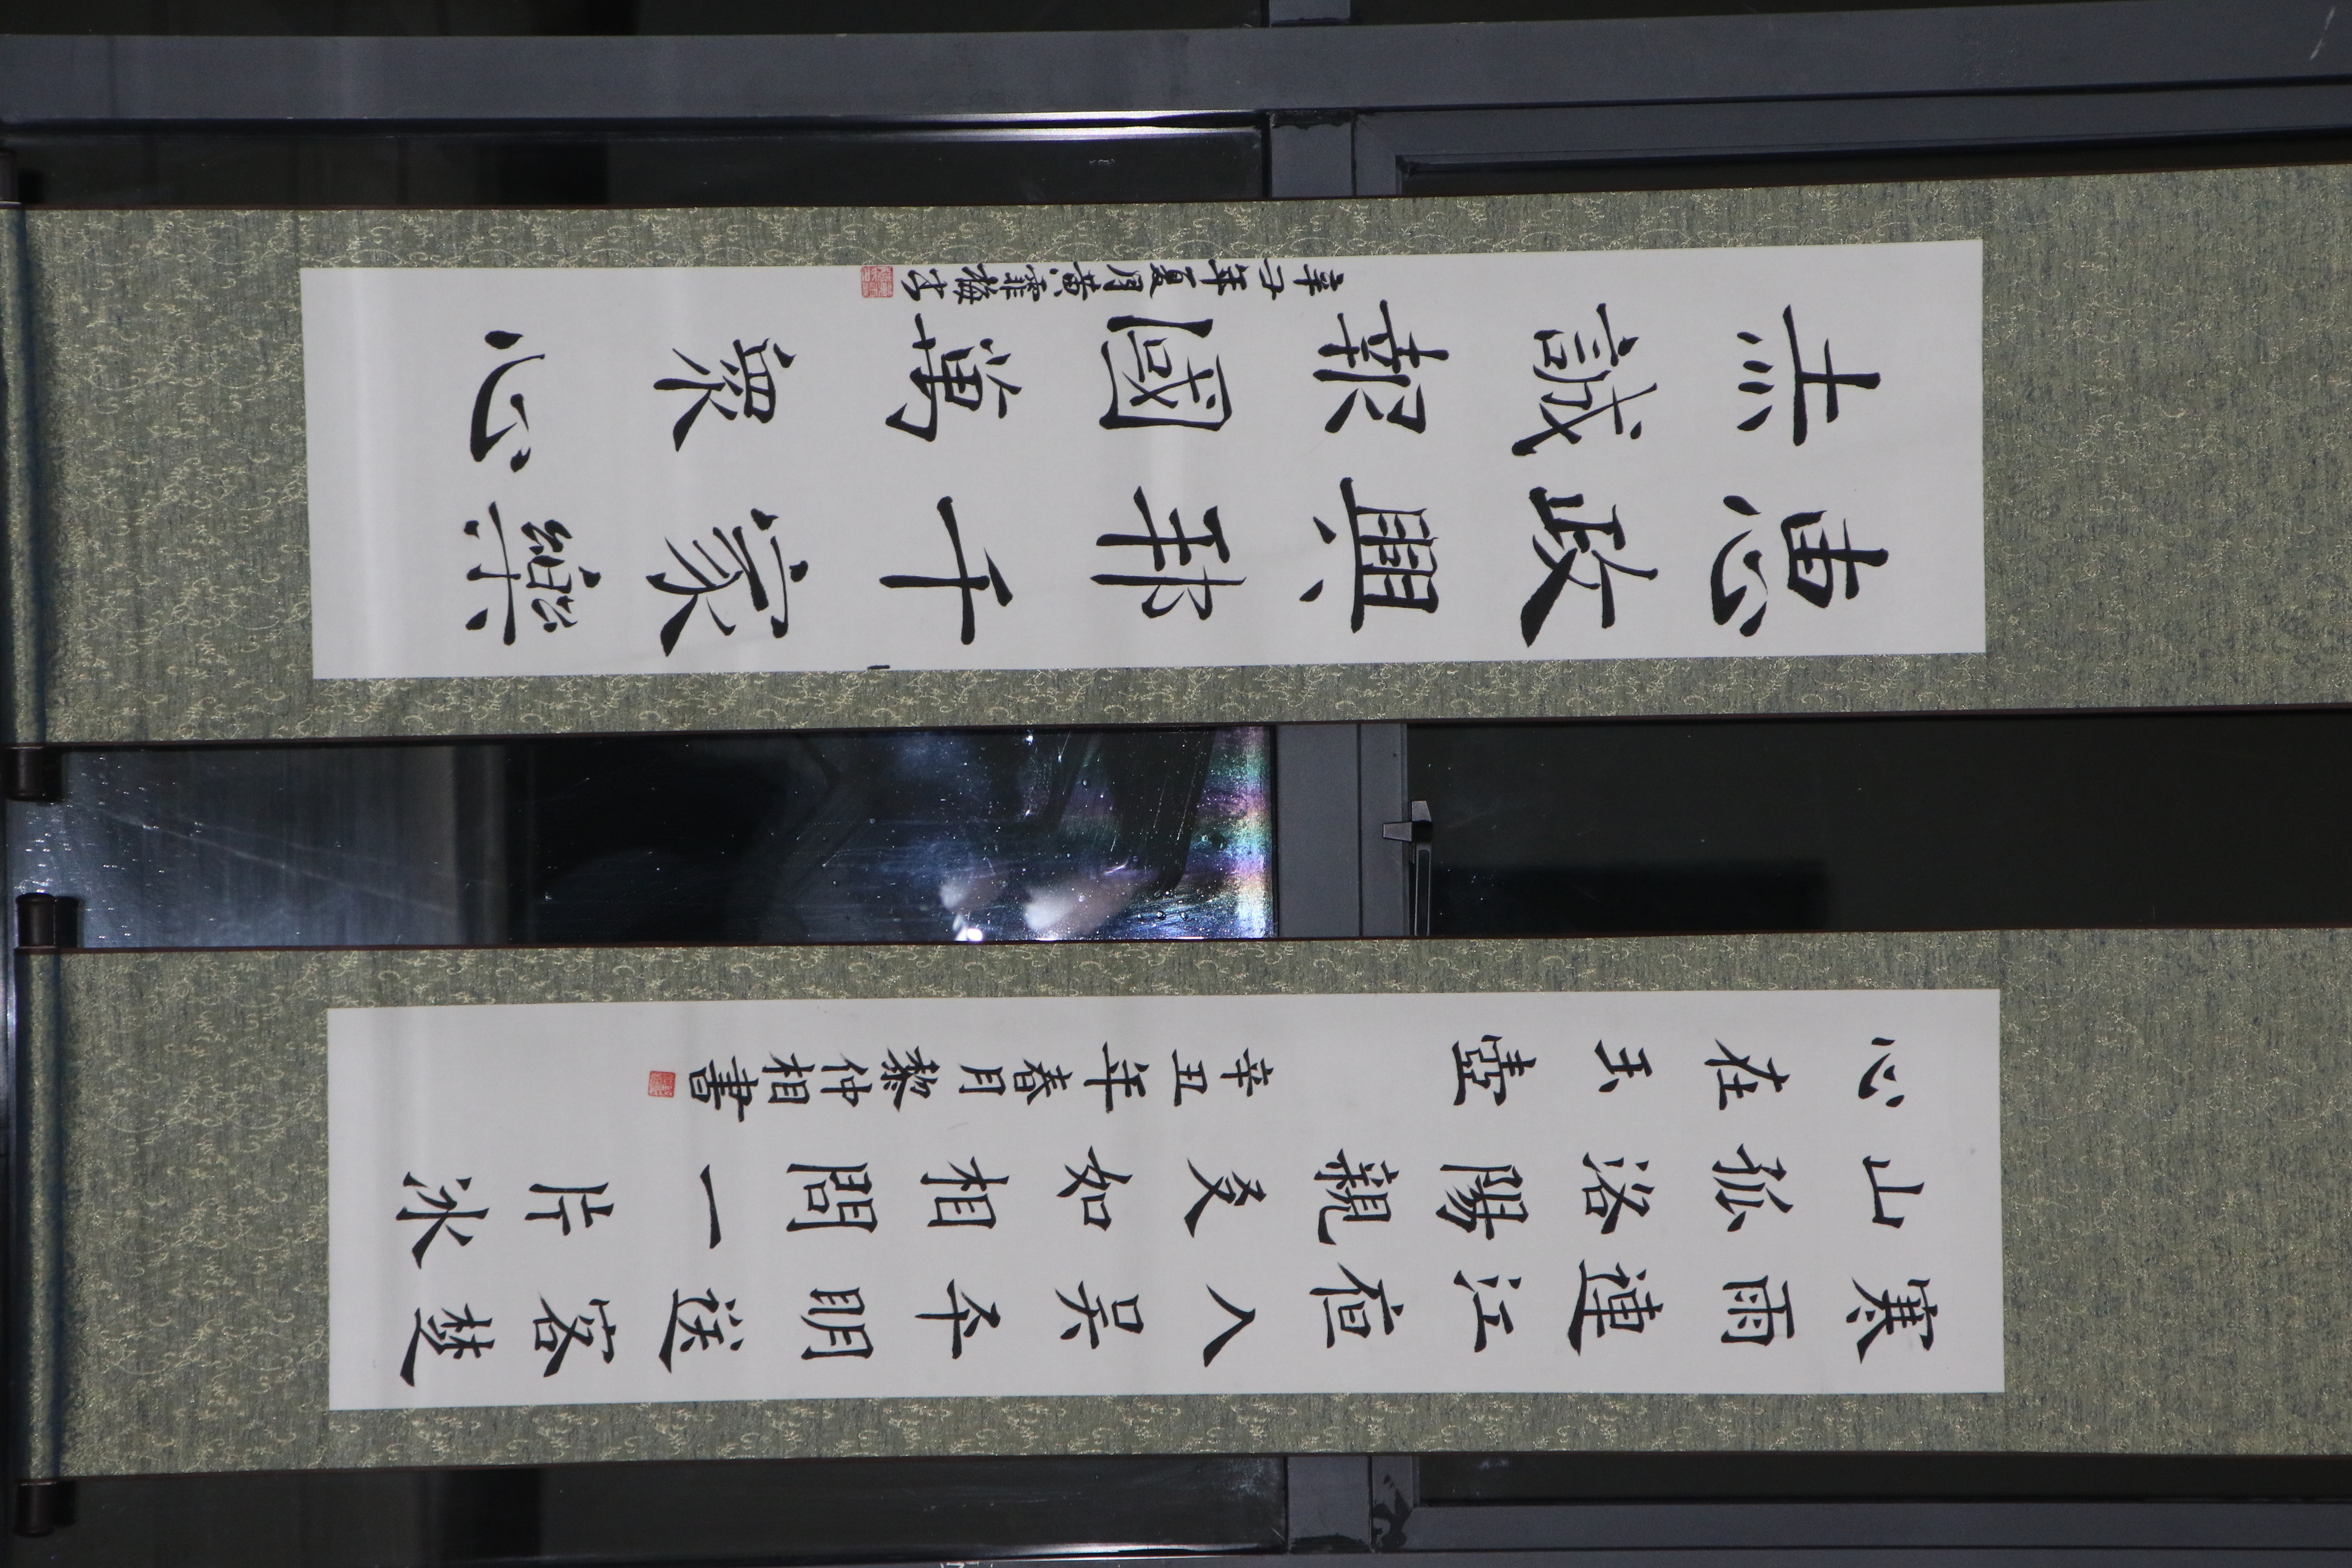 寒雨連江亱入吳平明送客楚
山孤洛陽親友如相問一片冰
心在玉壺
辛丑年春月黎仲相書
惠政興邦千家樂
赤誠報國萬眾心
辛丑年夏月黃霏梅书